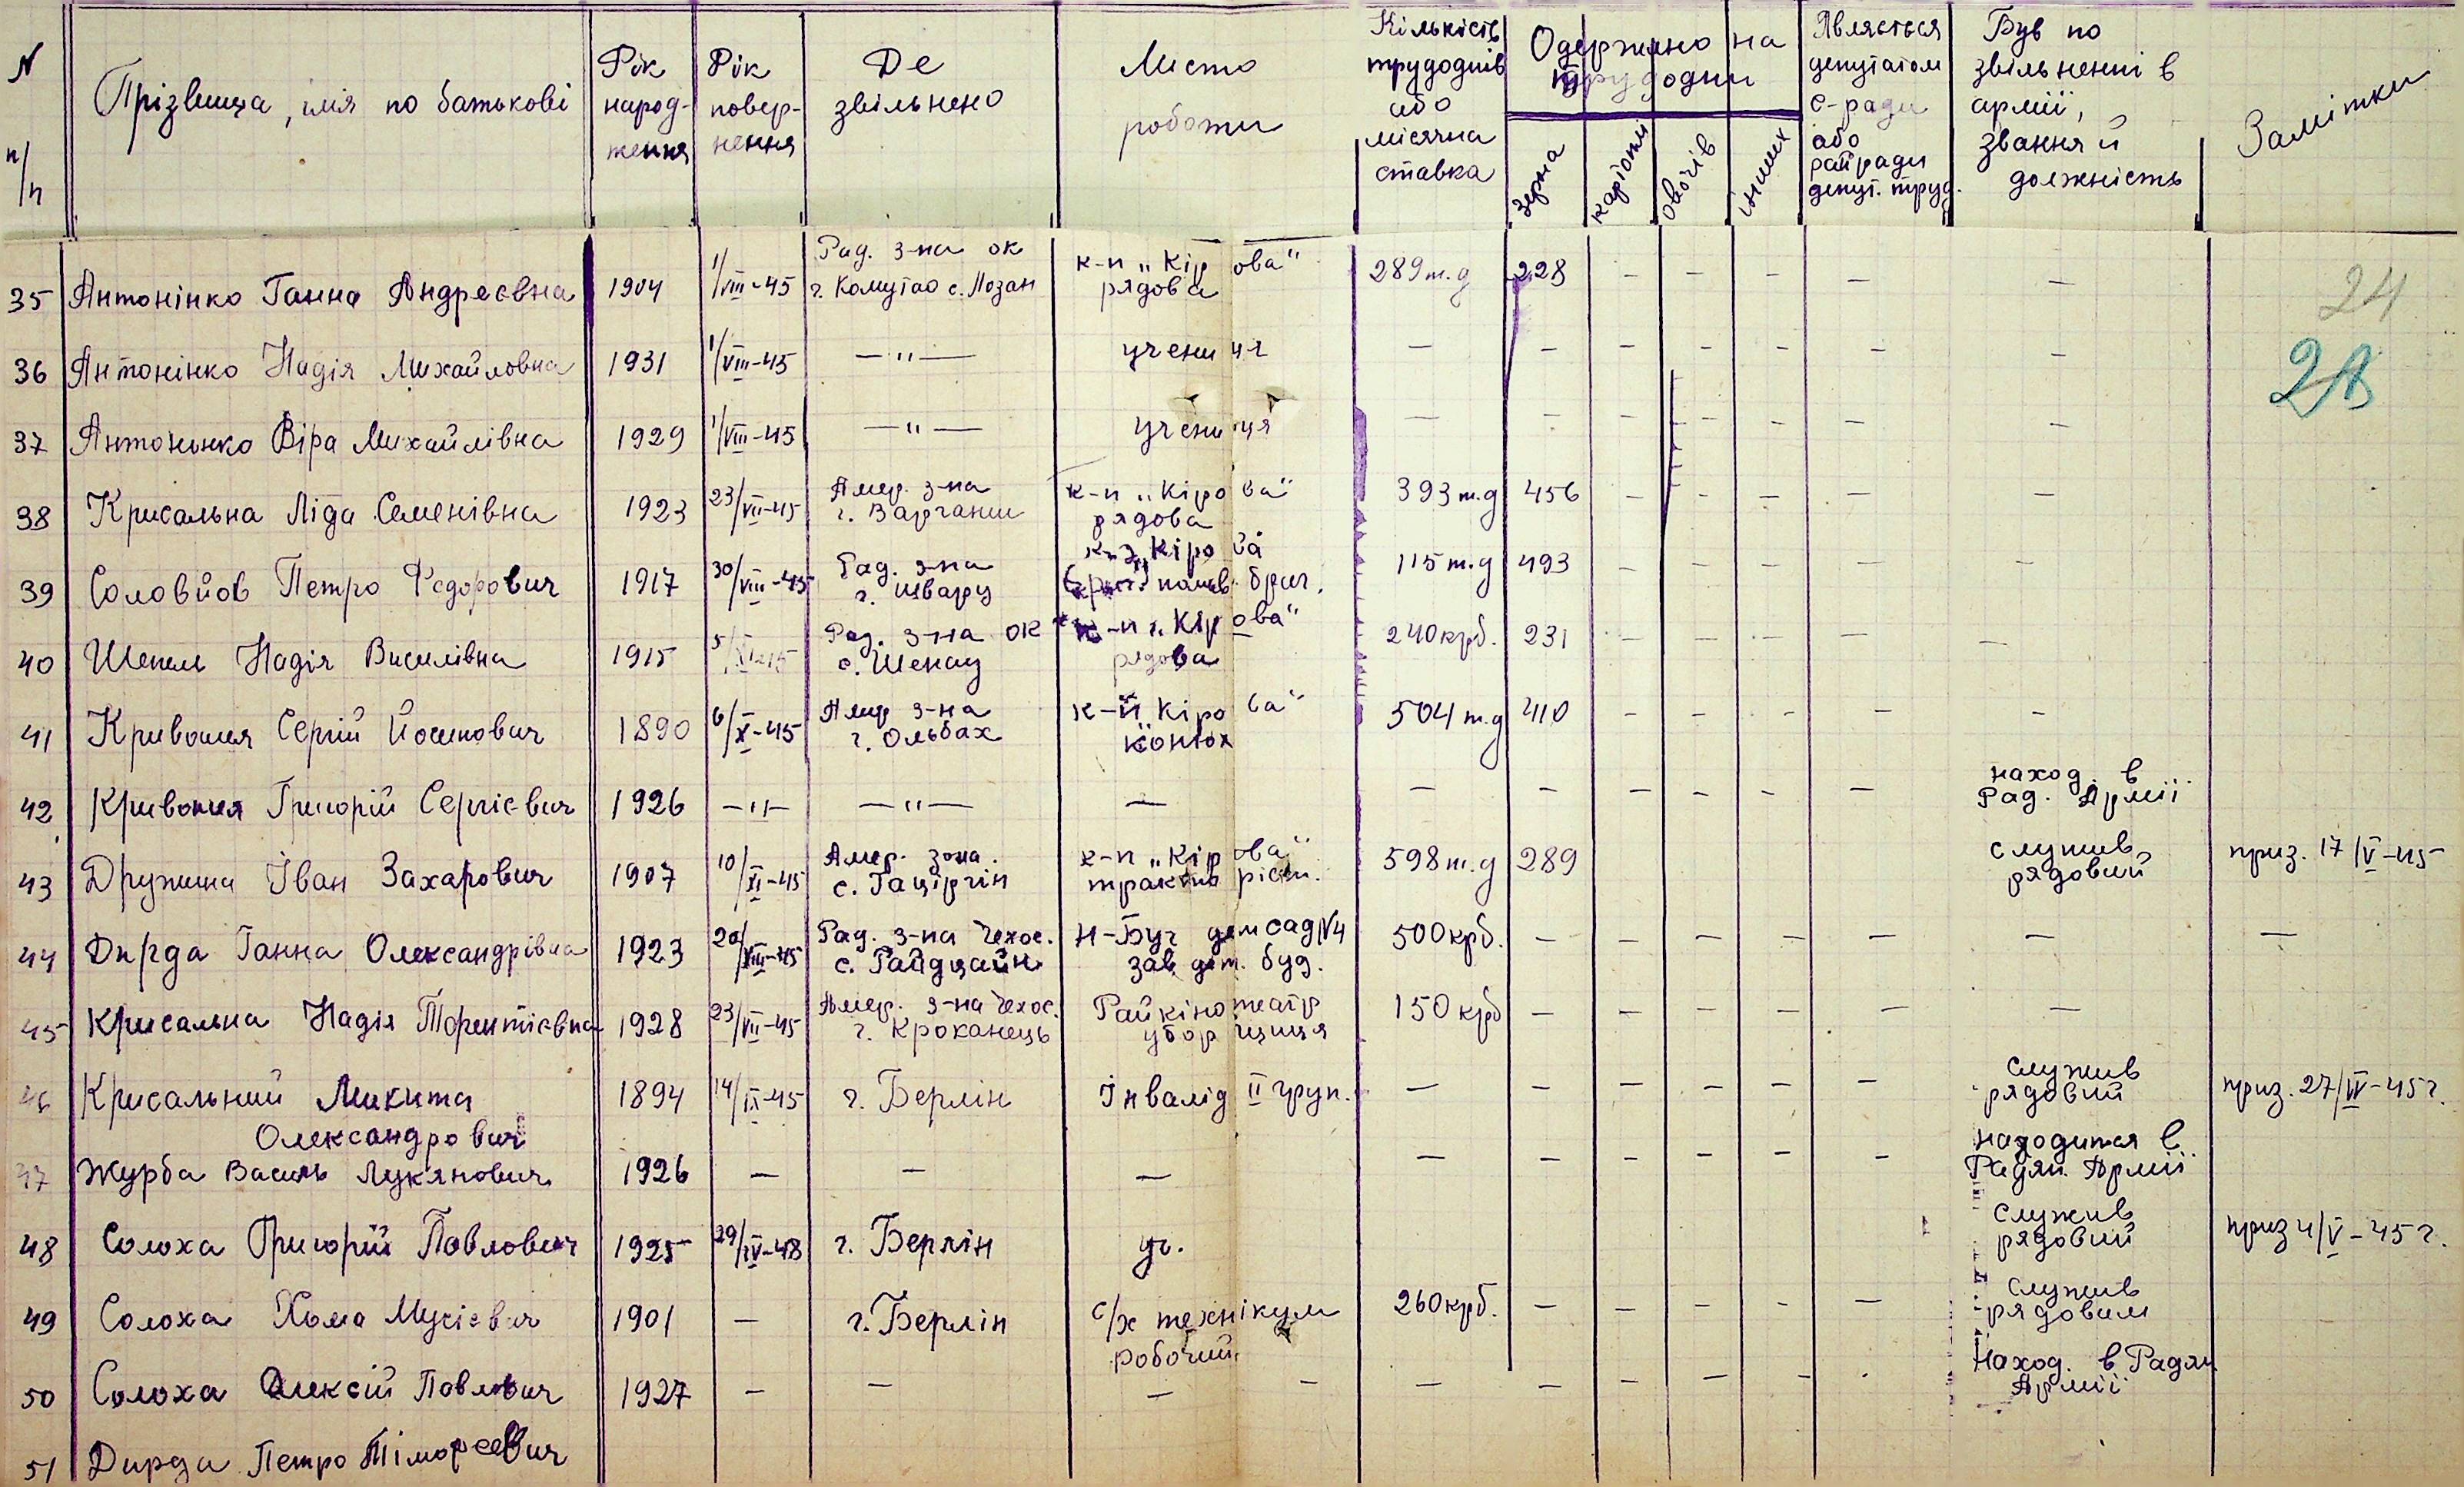 N п/п | Прізвища, імя по батькові | Рік народ-ження | Рік повер-нення | Де звільнено | Мисто роботи | Кількість трудоднів або місячна ставка | Одержано на трудодни: зерна, картоплі, овочів, інших | Являється депутатом с-ради або райради депут. труд. | Був по звільненні в армії, звання й должність | Замітки
24
28
35 Антонінко Ганна Андреєвна 1904 1/VIII-45 Рад. з-на ок г. Комутао с. Лозан к-п „Кірова" рядова 289 т.д 228 – – – – –
36 Антонінко Надія Михайловна 1931 1/VIII-45 —"— учениця – – – – – – –
37 Антононко Віра Михайлівна 1929 1/VIII-45 —"— учениця – – – – – – –
38 Крисальна Ліда Семенівна 1923 23/VII-45 Амер. з-на г. Варганш к-п „Кірова" рядова 393 т.д 456 – – – – –
39 Соловйов Петро Федорович 1917 30/VIII-45 Рад. з-на г. Шварц к-з „Кірова" польв. бриг. 115 т.д 493 – – – – –
40 Шепель Надія Василівна 1915 5/XI-45 Рад. з-на ок с. Шенау к-п „Кірова" рядова 240 крб. 231 – – – – –
41 Кривошия Сергій Йосипович 1890 6/X-45 Амер з-на г. Ольбах к-п „Кірова" конюх 504 т.д 410 – – – – –
42 Кривошия Григорій Сергієвич 1926 –"– —"— — – – – – – – наход. в Рад. Армії
43 Дружина Іван Захарович 1907 10/XI-45 Амер. зона. с. Гаціргін к-п „Кірова" тракторіст. 598 т.д 289 служив рядовий приз. 17/V-45
44 Дирда Ганна Олександрівна 1923 20/VIII-45 Рад. з-на Чехос. с. Гайдцайн Н-Буг дем сад N4 зав дет. буд. 500 крб. – – – – – – –
45 Крисальна Надія Терентієвна 1928 23/VII-45 Амер. з-на Чехос. г. Кроканець Райкінотеатр уборщиця 150 крб – – – – – –
46 Крисальний Микита Олександрович 1894 14/IX-45 г. Берлін Інвалід II груп. – – – – – – служив рядовий приз. 27/IV-45 г.
47 Журба Василь Лукянович 1926 – – – – – – – – – находится в Радян. Армії
48 Солоха Григорій Павлович 1925 29/IV-48 г. Берлін уч. служив рядовий приз 4/V-45 г.
49 Солоха Хома Мусієвич 1901 – г. Берлін с/х технікум робочий 260 крб. – – – – – служив рядовим
50 Солоха Олексій Павлович 1927 – – – – – – – – – – Наход. в Радян Армії
51 Дирда Петро Тімофеевич